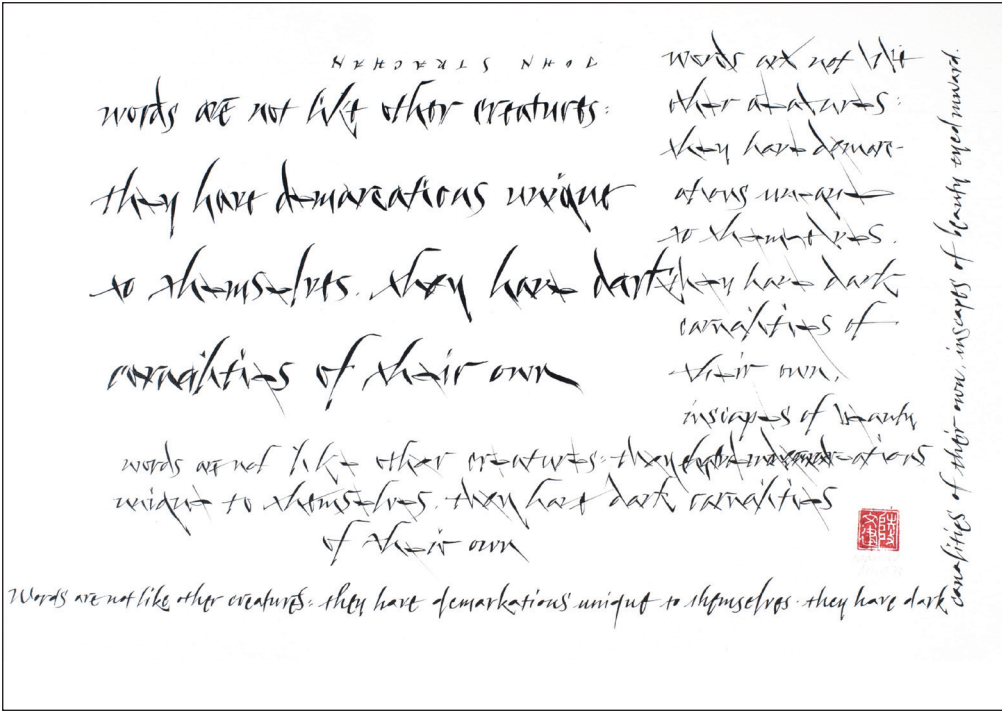 JOHN STRACHAN
words are not like other creatures:
they have demarcations unique
to themselves. they have dark
carnalities of their own
words are not like
other creatures:
they have demarc-
ations unique
to themselves.
they have dark
carnalities of
their own,
inscapes of beauty
eyed inward
words are not like other creatures: they have demarcations
unique to themselves. they have dark carnalities
of their own
Words are not like other creatures: they have demarkations unique to themselves. they have dark
carnalities of their own, inscapes of beauty eyed inward.